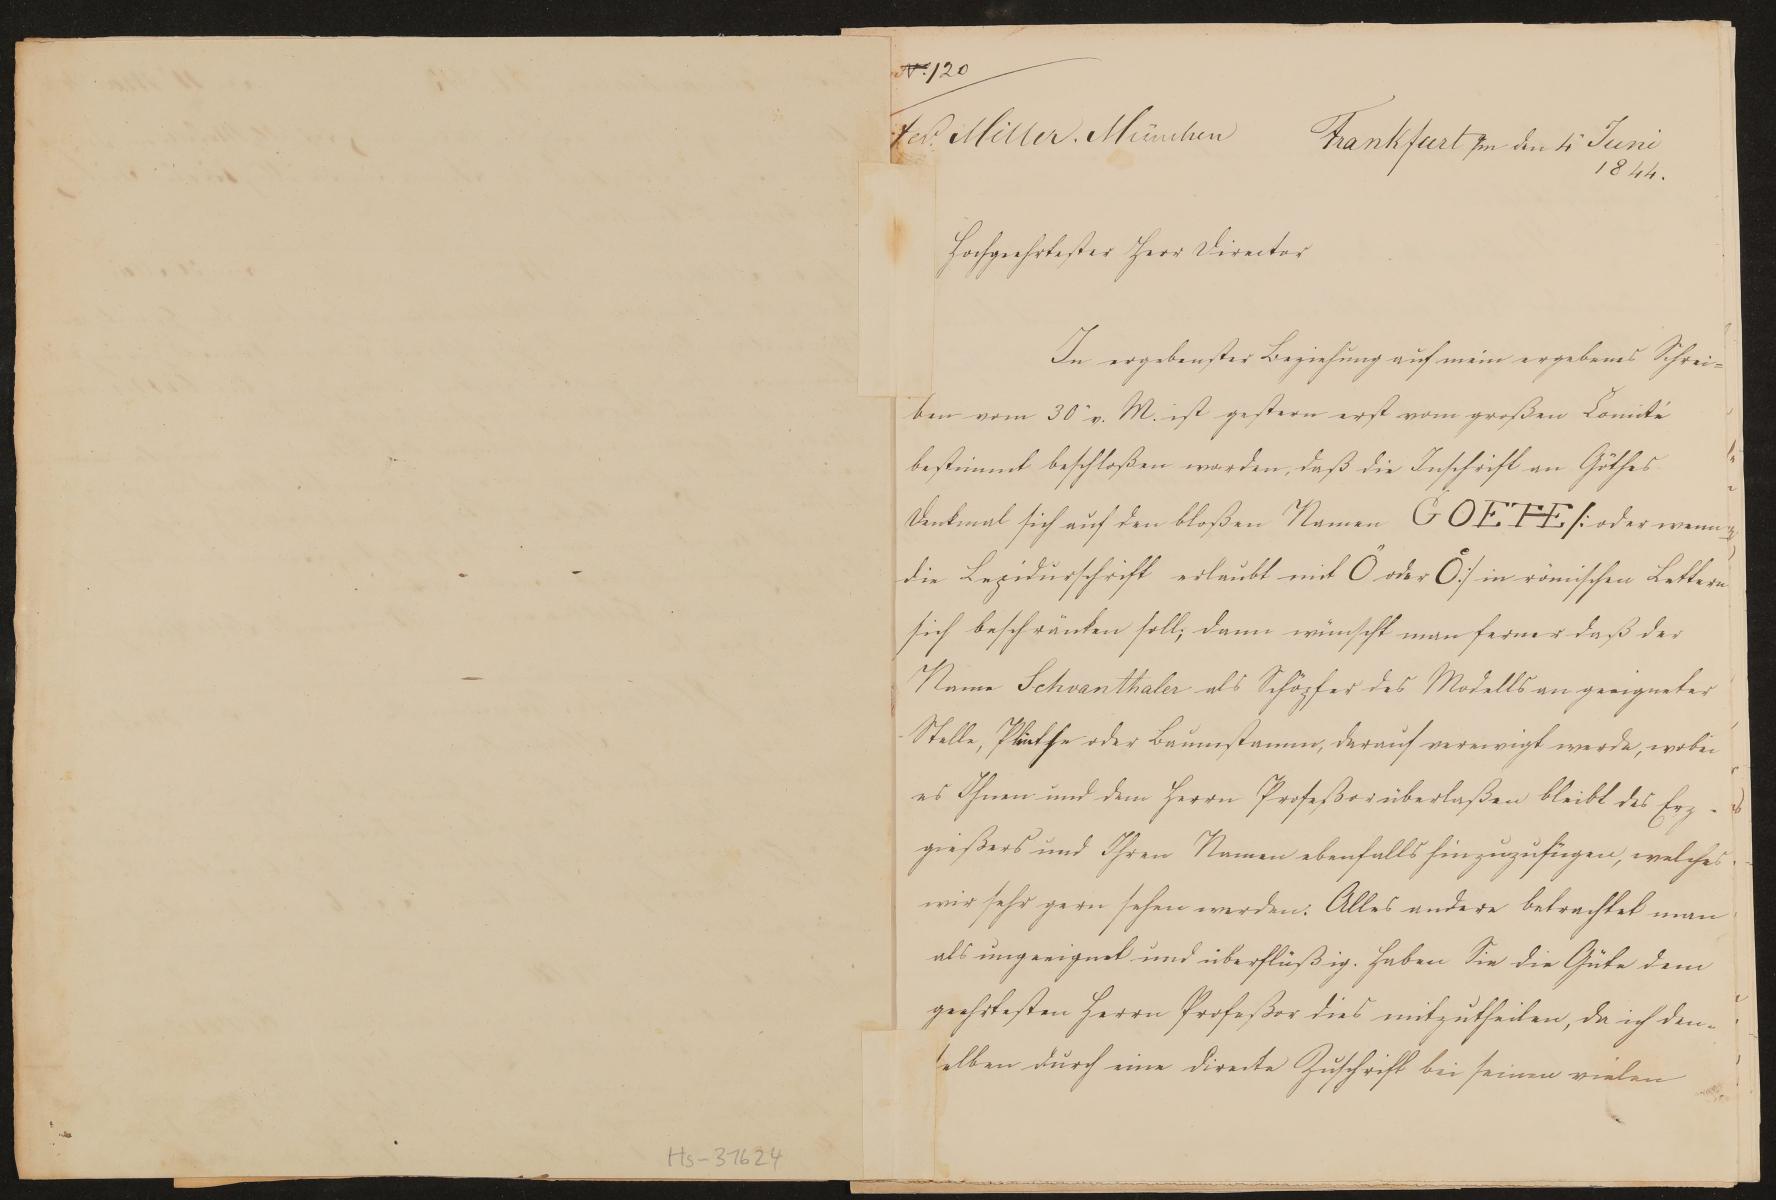 N. 120
Ferd. Miller. München Frankfurt a/m den 4 Juni
1844.
Hochgeehrtester Herr Director
In ergebenster Beziehung auf mein ergebenes Schrei=
ben vom 30 v. M. ist gestern erst vom großen Comité
bestimmt beschloßen worden, daß die Inschrift an Göthes
Denkmal sich auf den bloßen Namen GOETHE /: oder wenn
die Lapidarschrift erlaubt mit Ö oder Oͤ :/ in römischen Lettern
sich beschränken soll; dann wünscht man ferner daß der
Name Schwanthaler als Schöpfer des Modells an geeigneter
Stelle, Plinthe oder Baumstamm, darauf verewigt werde, wobei
es Ihnen und dem Herrn Profeßor überlaßen bleibt des Erz-
gießers und Ihren Namen ebenfalls hinzuzufügen, welches
wir sehr gern sehen werden. Alles andere betrachtet man
als ungeeignet und überflüßig. Haben Sie die Güte dem
geehrtesten Herrn Profeßor dies mitzutheilen, da ich den-
selben durch eine directe Zuschrift bei seinen vielen
Hs-31624